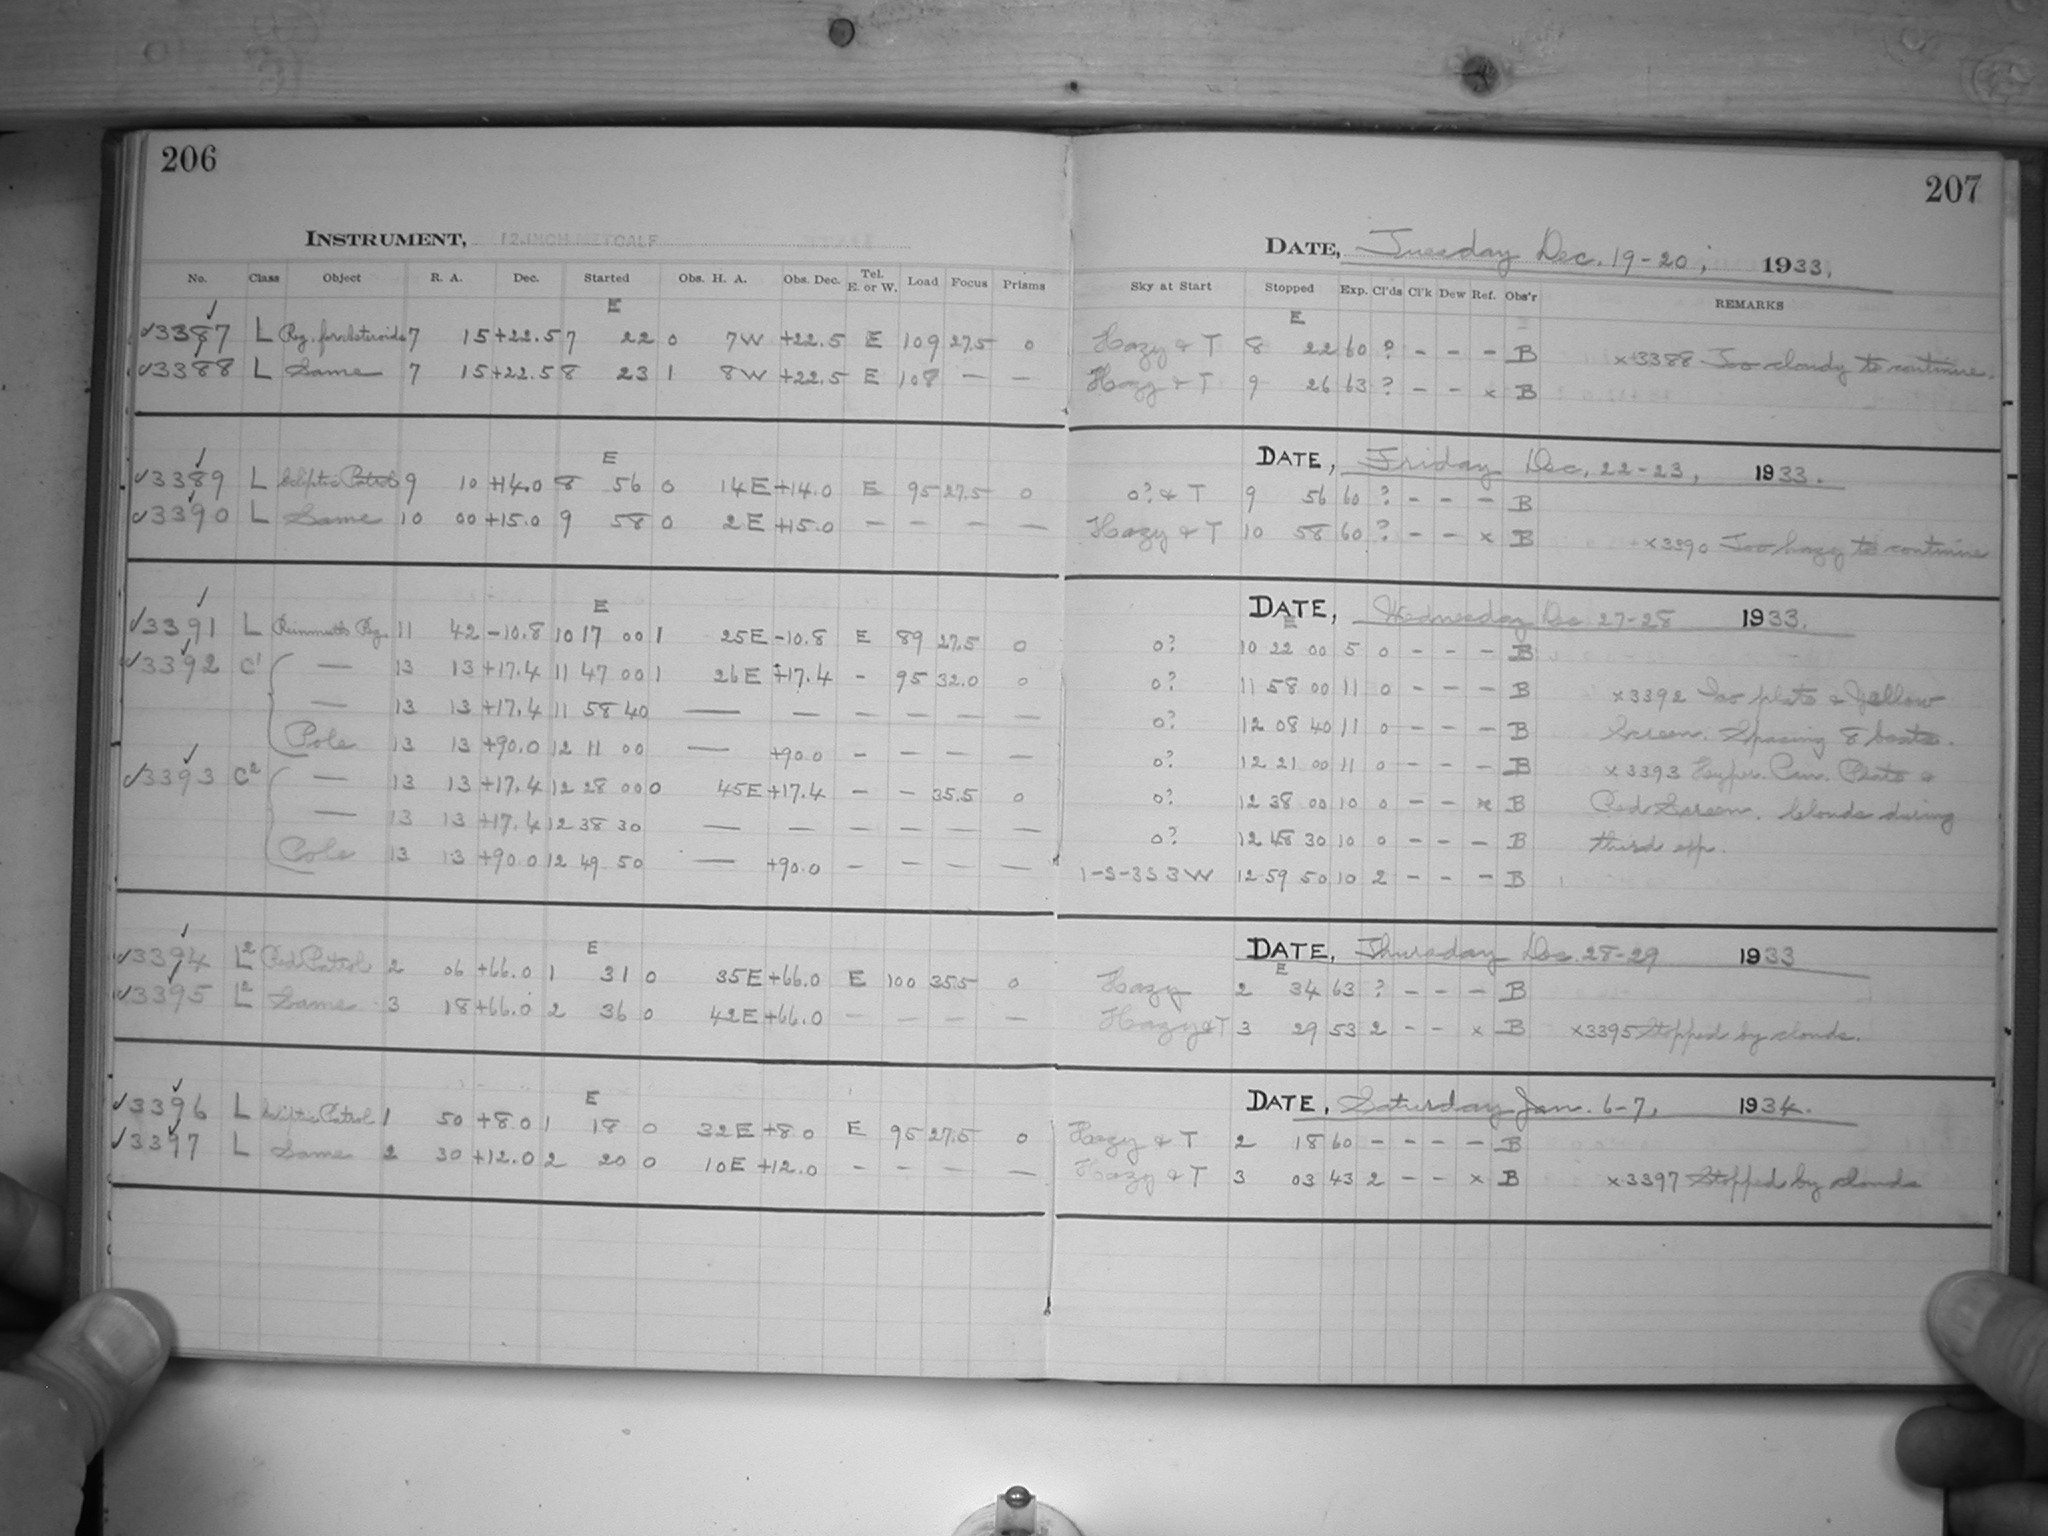 206
207
INSTRUMENT, 12-INCH METCALF
DATE, Tuesday Dec. 19-20, 1933.
No. Class Object R. A. Dec. Started Obs. H. A. Obs. Dec. Tel. E. or W. Load Focus Prisms Sky at Start Stopped Exp. Cl'ds Cl'k Dew Ref. Obs'r REMARKS
E E
√3387 L Reg. for Asteroids 7 15 +22.5 7 22 0 7W +22.5 E 109 27.5 0 Hazy & T 8 22 60 ? - - - B
√3388 L Same 7 15 +22.5 8 23 1 8W +22.5 E 108 — — Hazy & T 9 26 63 ? - - x B x3388 Too cloudy to continue.
DATE, Friday Dec. 22-23, 1933.
E
√3389 L Ecliptic Patrol 9 10 +14.0 8 56 0 14E +14.0 E 95 27.5 0 0? & T 9 56 60 ? - - - B
√3390 L Same 10 00 +15.0 9 58 0 2E +15.0 — — — — Hazy & T 10 58 60 ? - - x B x3390 Too hazy to continue
DATE, Wednesday Dec. 27-28 1933.
E E
√3391 L Reinmuth's Reg. 11 42 -10.8 10 17 00 1 25E -10.8 E 89 27.5 0 0? 10 22 00 5 0 - - - B
√3392 C1 — 13 13 +17.4 11 47 00 1 26E +17.4 - 95 32.0 0 0? 11 58 00 11 0 - - - B x3392 Iso plate & Yellow
— 13 13 +17.4 11 58 40 — — — — — — 0? 12 08 40 11 0 - - - B Screen. Spacing 8 beats.
Pole 13 13 +90.0 12 11 00 — +90.0 - — — — 0? 12 21 00 11 0 - - - B x3393 Hyper. Pan. Plate &
√3393 C2 — 13 13 +17.4 12 28 00 0 45E +17.4 - - 35.5 0 0? 12 38 00 10 0 - - x B Red Screen. Clouds during
— 13 13 +17.4 12 38 30 — — — — — — 0? 12 48 30 10 0 - - - B third exp.
Pole 13 13 +90.0 12 49 50 — +90.0 - — — — 1-S-3S3W 12 59 50 10 2 - - - B
DATE, Thursday Dec. 28-29 1933
E E
√3394 L2 Red Patrol 2 06 +66.0 1 31 0 35E +66.0 E 100 35.5 0 Hazy 2 34 63 ? - - - B
√3395 L2 Same 3 18 +66.0 2 36 0 42E +66.0 — — — — Hazy & T 3 29 53 2 - - x B x3395 Stopped by clouds.
DATE, Saturday Jan. 6-7, 1934.
E
√3396 L Ecliptic Patrol 1 50 +8.0 1 18 0 32E +8.0 E 95 27.5 0 Hazy & T 2 18 60 - - - - B
√3397 L Same 2 30 +12.0 2 20 0 10E +12.0 - - - — Hazy & T 3 03 43 2 - - x B x3397 Stopped by clouds